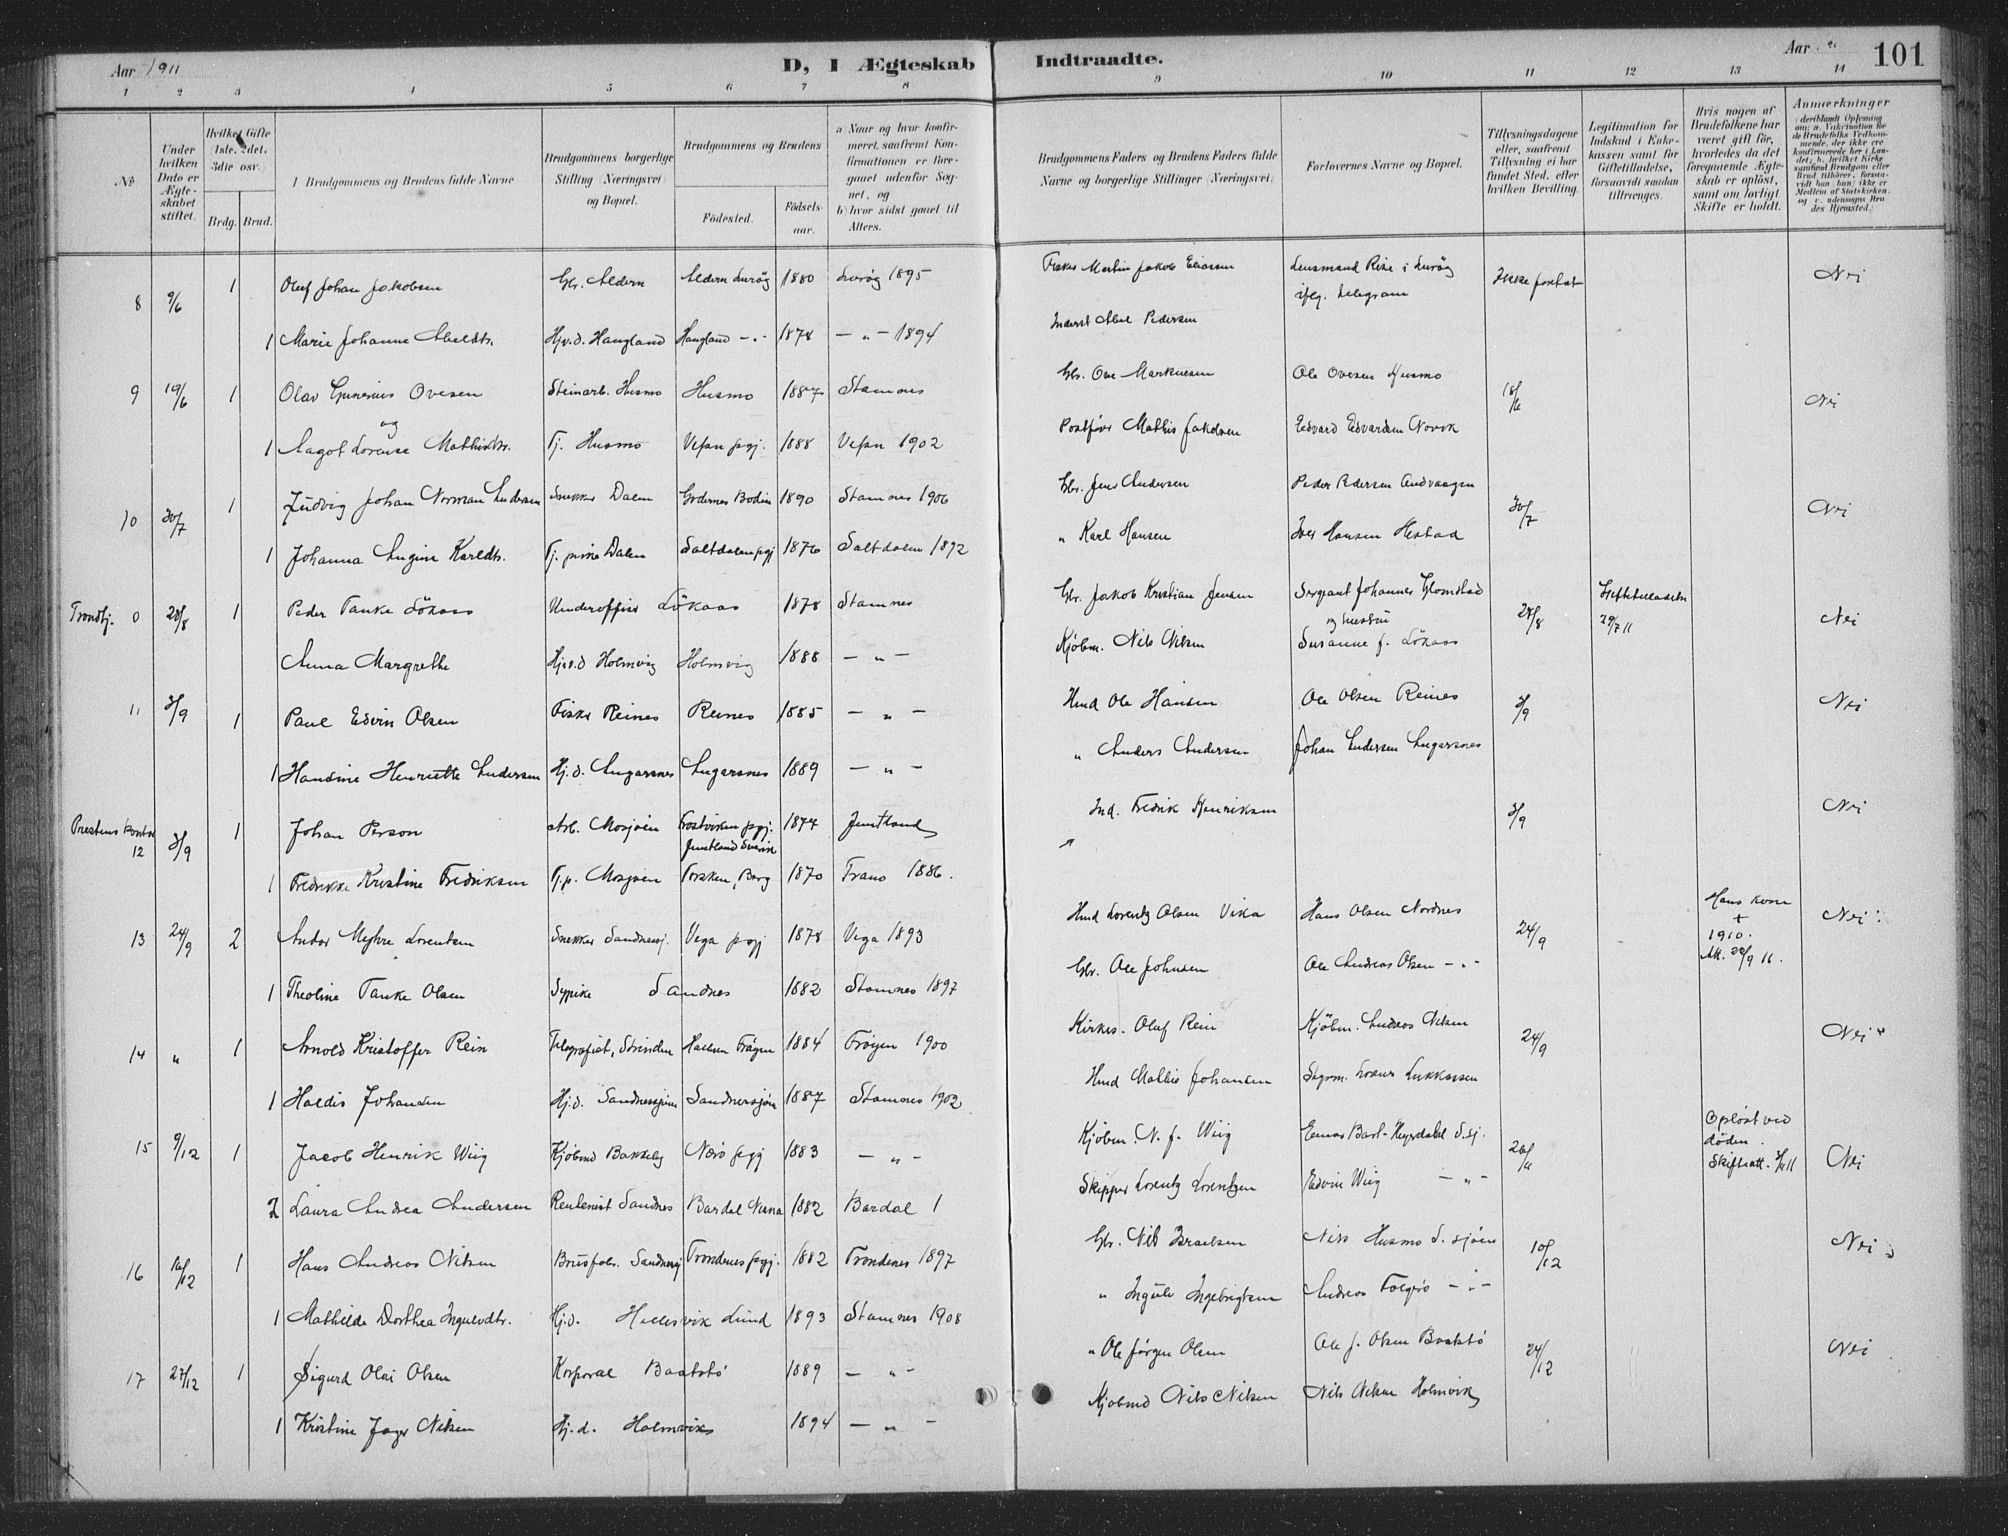 Aar 1911
D, I Ægteskab Indtraadte.
Aar "
101
1 2 3 4 5 6 7 8 9 10 11 12 13 14
No
Under hvilken Dato er Ægteskabet stiftet.
Hvilket Gifte (1ste, 2det, 3die osv.)
Brdg. Brud.
Brudgommens og Brudens fulde Navne
Brudgommens borgerlige Stilling (Næringsvei) og Bopæl.
Brudgommens og Brudens
Födested.
Födsels-aar.
a) Naar og hvor konfirmeret, saafremt Konfirmationen er foregaaet udenfor Sognet, og
b) hvor sidst gaaet til Alters.
Brudgommens Faders og Brudens Faders fulde Navne og borgerlige Stillinger (Næringsvei)
Forlovernes Navne og Bopæl.
Tillysningsdagene eller, saafremt Tillysning ei har fundet Sted, efter hvilken Bevilling.
Legitimation for Indskud i Enkekassen samt for Giftetilladelse, forsaavidt saadan tiltrænges.
Hvis nogen af Brudefolkene har været gift för, hvorledes da det foregaaende Ægteskab er oplöst, samt om lovligt Skifte er holdt.
Anmærkninger
8 9/6 1 Oluf Johan Jakobsen Gbr. Aldern Aldern Lurøy 1880 Lurøy 1895 Fisker Martin Jakob Eliassen Lensmand Rise i Lurøy Ikke foretat Nei
iflg. telegram
1 Marie Johanne Abeldtr. Hjv.d. Haugland Haugland - " - 1878 - " - 1894 Inderst Abel Pedersen
9 18/6 1 Olav Gunerius Ovesen Steinarb. Husmo Husmo 1887 Stamnes Gbr. Ove Markusen Ole Ovesen Husmo 18/6 Nei
og
1 Aagot Lorense Mathisdtr. Tj. Husmo Vefsn pgj. 1888 Vefsn 1902 Mathis Jakobsen Edvard Edvardsen Novik
10 30/7 1 Ludvig Johan Norman Andersen Snekker Dalen Bodin 1890 Stamnes 1906 Gbr. Jens Andersen Peder Pedersen Andvaagen 30/7 Nei
1 Johanna Karldtr. Tj. pike Dalen Saltdalen pgj 1876 Saltdalen 1892 " Karl Hansen Iver Hansen Hestad
Trondhj. 0 28/8 1 Peder Tanke Lökaas Underofficer Lökaas 1878 Stamnes Gbr. Jakob Kristian Jensen Sergeant Johannes Glomstad 28/8 Giftetilladelse 29/7 11 Nei
og hustru
Anna Margrethe Hjv.d Holmvig Holmvig 1888 - " - Kjøbm. Nils Nilsen Susanne f. Lökaas
11 3/9 1 Paul Edvin Olsen Fisker Reines Reines 1885 - " - Hmd Ole Hansen Ole Olsen Reines 3/9 Nei
1 Hansine Henriette Andersen Hj.d. 1889 - " - " Anders Andersen Johan Andersen
Prestens kontor
12 3/9 1 Johan Person Arb. Mosjøen Frostviken pgj. 1874 Jemtland Ind. Fredrik Henriksen 3/9 Nei
Jemtland Sverige
1 Fredrikke Kristine Fredriksen Tj.p. Mosjøen Torsken, Berg 1870 Tranø 1886.
13 24/9 2 Andor Myhre Lorentsen Snekker Sandnessj. Vega pgj 1878 Vega 1893 Hmd Lorentz Olsen Vika Hans Olsen Nordnes 24/9 Hans kone + 1910. Att. 20/9 11. Nei
1 Theoline Tanke Olsen Sypike Sandnes 1882 Stamnes 1897 Gbr. Ole Johnsen Ole Andreas Olsen - " -
14 " 1 Arnold Kristoffer Rein Telegrafist, Strinden Frøyen 1884 Frøyen 1900 Kirkes. Oluf Rein Kjøbm. Andreas Nilsen 24/9 Nei
1 Haldis Johansen Hj.d. Sandnessjøen Sandnessjøen 1887 Stamnes 1902 Hmd Mathis Johansen Styrm. Lukkassen
15 9/12 1 Jacob Henrik Wiig Kjøbmd Bakkeby Nærø pgj 1883 - " - Kjøbm. N. J. Wiig Bast-Heyerdahl S.sj. 26/11 Opløst ved døden. Skifteatt. Nei
2 Laura Andrea Andersen Rentenist Sandnes Bardal Nesna 1882 Bardal 1 Skipper Lorentz Lorentzen Edvin Wiig - " -
16 10/12 1 Hans Andreas Nilsen Brusfabr. Sandnessj Trondenes pgj. 1882 Trondenes 1897 Gbr. Nils Israelsen Nils Husmo S. sjøen 10/12 Nei
1 Mathilde Dorthea Ingulvdtr. Hj.d. Hellesvik Lund 1893 Stamnes 1908 " Ingulv Ingebrigtsen Andreas - " -
17 27/12 1 Sigurd Olai Olsen Korporal Baatstø 1889 - " - " Ole Jørgen Olsen Ole J. Olsen Baatstø 24/12 Nei
1 Kristine Jager Nilsen Hj.d. Holmvik 1894 - " - Kjøbmd Nils Nilsen Nils Nilsen Holmvik